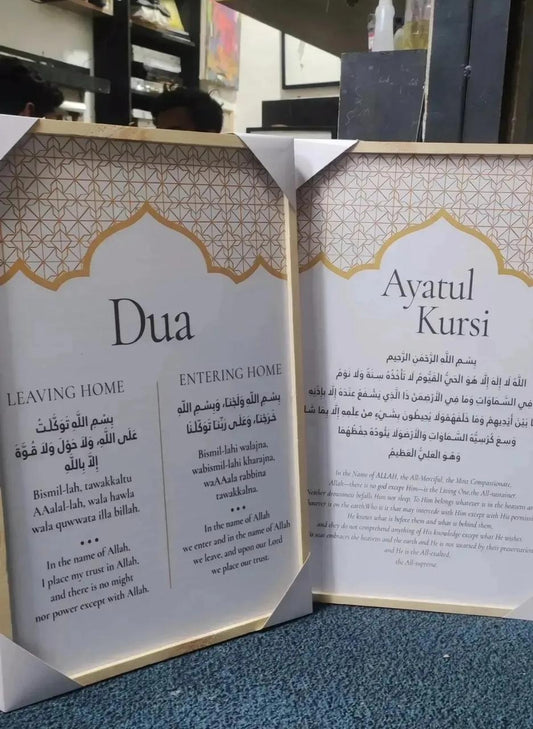 Dua
LEAVING HOME
بِسْمِ اللَّهِ تَوَكَّلْتُ
عَلَى اللَّهِ، وَلاَ حَوْلَ وَلاَ قُوَّةَ
إِلاَّ بِاللَّهِ
Bismil-lah, tawakkaltu
AAalal-lah, wala hawla
wala quwwata illa billah.
In the name of Allah,
I place my trust in Allah,
and there is no might
nor power except with Allah.
ENTERING HOME
بِسْمِ اللَّهِ وَلَجْنَا، وَبِسْمِ اللَّهِ
خَرَجْنَا، وَعَلَى رَبِّنَا تَوَكَّلْنَا
Bismil-lahi walajna,
wabismil-lahi kharajna,
waAAala rabbina
tawakkalna.
In the name of Allah
we enter and in the name of Allah
we leave, and upon our Lord
we place our trust.
Ayatul
Kursi
بِسْمِ اللَّهِ الرَّحْمَنِ الرَّحِيمِ
اللَّهُ لَا إِلَهَ إِلَّا هُوَ الْحَيُّ الْقَيُّومُ لَا تَأْخُذُهُ سِنَةٌ وَلَا نَوْمٌ
فِي السَّمَاوَاتِ وَمَا فِي الْأَرْضِمَنْ ذَا الَّذِي يَشْفَعُ عِنْدَهُ إِلَّا بِإِذْنِهِ
بَيْنَ أَيْدِيهِمْ وَمَا خَلْفَهُمْوَلَا يُحِيطُونَ بِشَيْءٍ مِنْ عِلْمِهِ إِلَّا بِمَا شَا
وَسِعَ كُرْسِيُّهُ السَّمَاوَاتِ وَالْأَرْضَوَلَا يَئُودُهُ حِفْظُهُمَا
وَهُوَ الْعَلِيُّ الْعَظِيمُ
In the Name of ALLAH, the All-Merciful, the Most Compassionate,
Allah—there is no god except Him—is the Living One, the All-sustainer.
Neither drowsiness befalls Him nor sleep. To Him belongs whatever is in the heavens and
whatever is on the earth. Who is it that may intercede with Him except with His permission?
He knows what is before them and what is behind them,
and they do not comprehend anything of His knowledge except what He wishes.
seat embraces the heavens and the earth and He is not wearied by their preservation
and He is the All-exalted,
the All-supreme.